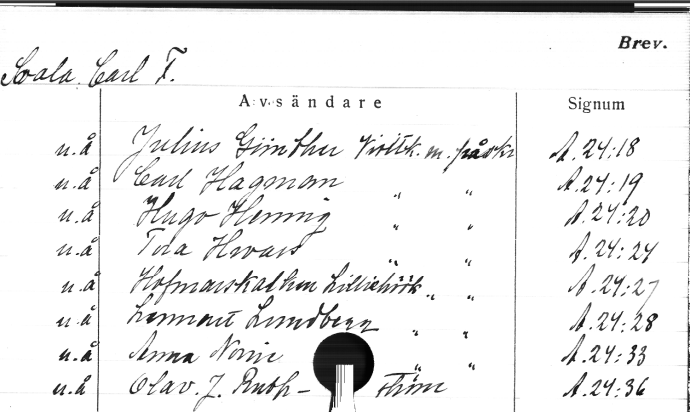 Brev.
Scala. Carl F.
Avsändare Signum
u.å Julius Günther Visitk. m. påskr A. 24:18
u.å Carl Hagman " " A. 24:19
u.å Hugo Hennig " " A. 24:20
u.å Tora Hwass " " A. 24:24
u.å Hofmarskalken Lilliehöök " " A. 24:27
u.å Lennart Lundberg " " A. 24:28
u.å Anna Norrie " " A. 24:33
u.å Olav. J. Ruth- ström A. 24:36